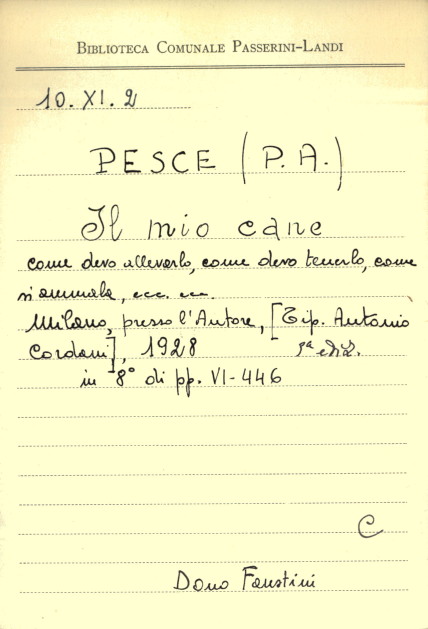 BIBLIOTECA COMUNALE PASSERINI-LANDI
10. XI. 2
PESCE (P. A.)
Il mio cane
come devo allevarlo, come devo tenerlo, come
si ammala, ecc. ecc.
Milano, presso l'Autore, [Tip. Antonio
Cordani], 1928 3ª ediz.
in 8° di pp. VI-446
C
Dono Faustini